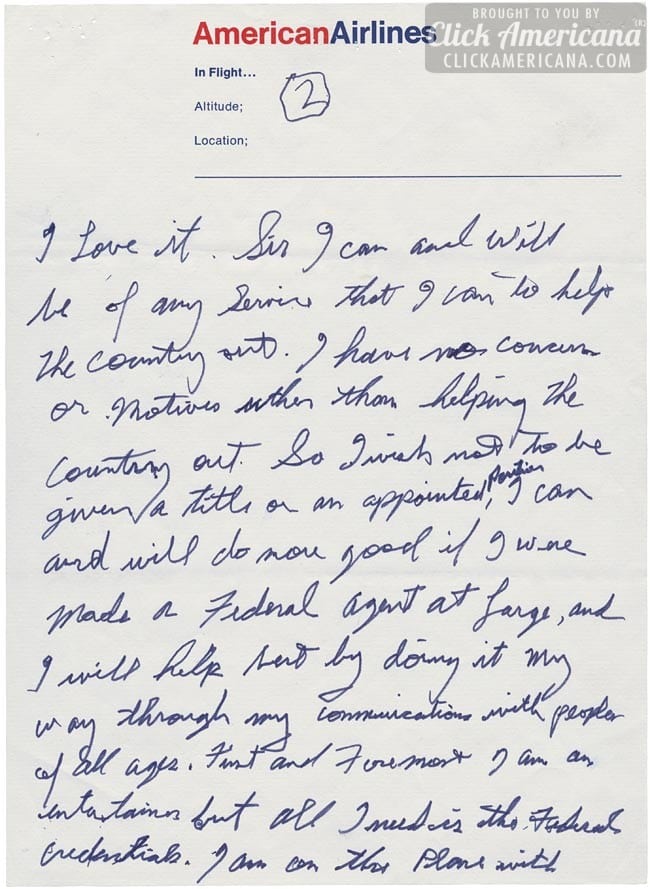 BROUGHT TO YOU BY
Click Americana (R)
CLICKAMERICANA.COM
AmericanAirlines
In Flight...
Altitude;
2
Location;
I Love it. Sir I can and will
be of any Service that I can to help
the country out. I have no concern
or Motives other than helping the
country out. So I wish not to be
given a title or an appointed, Position
I can
and will do more good if I were
made a Federal Agent at Large, and
I will help best by doing it my
way through my communications with people
of all ages. First and Foremost I am an
entertainer but all I need is the Federal
credentials. I am on this Plane with